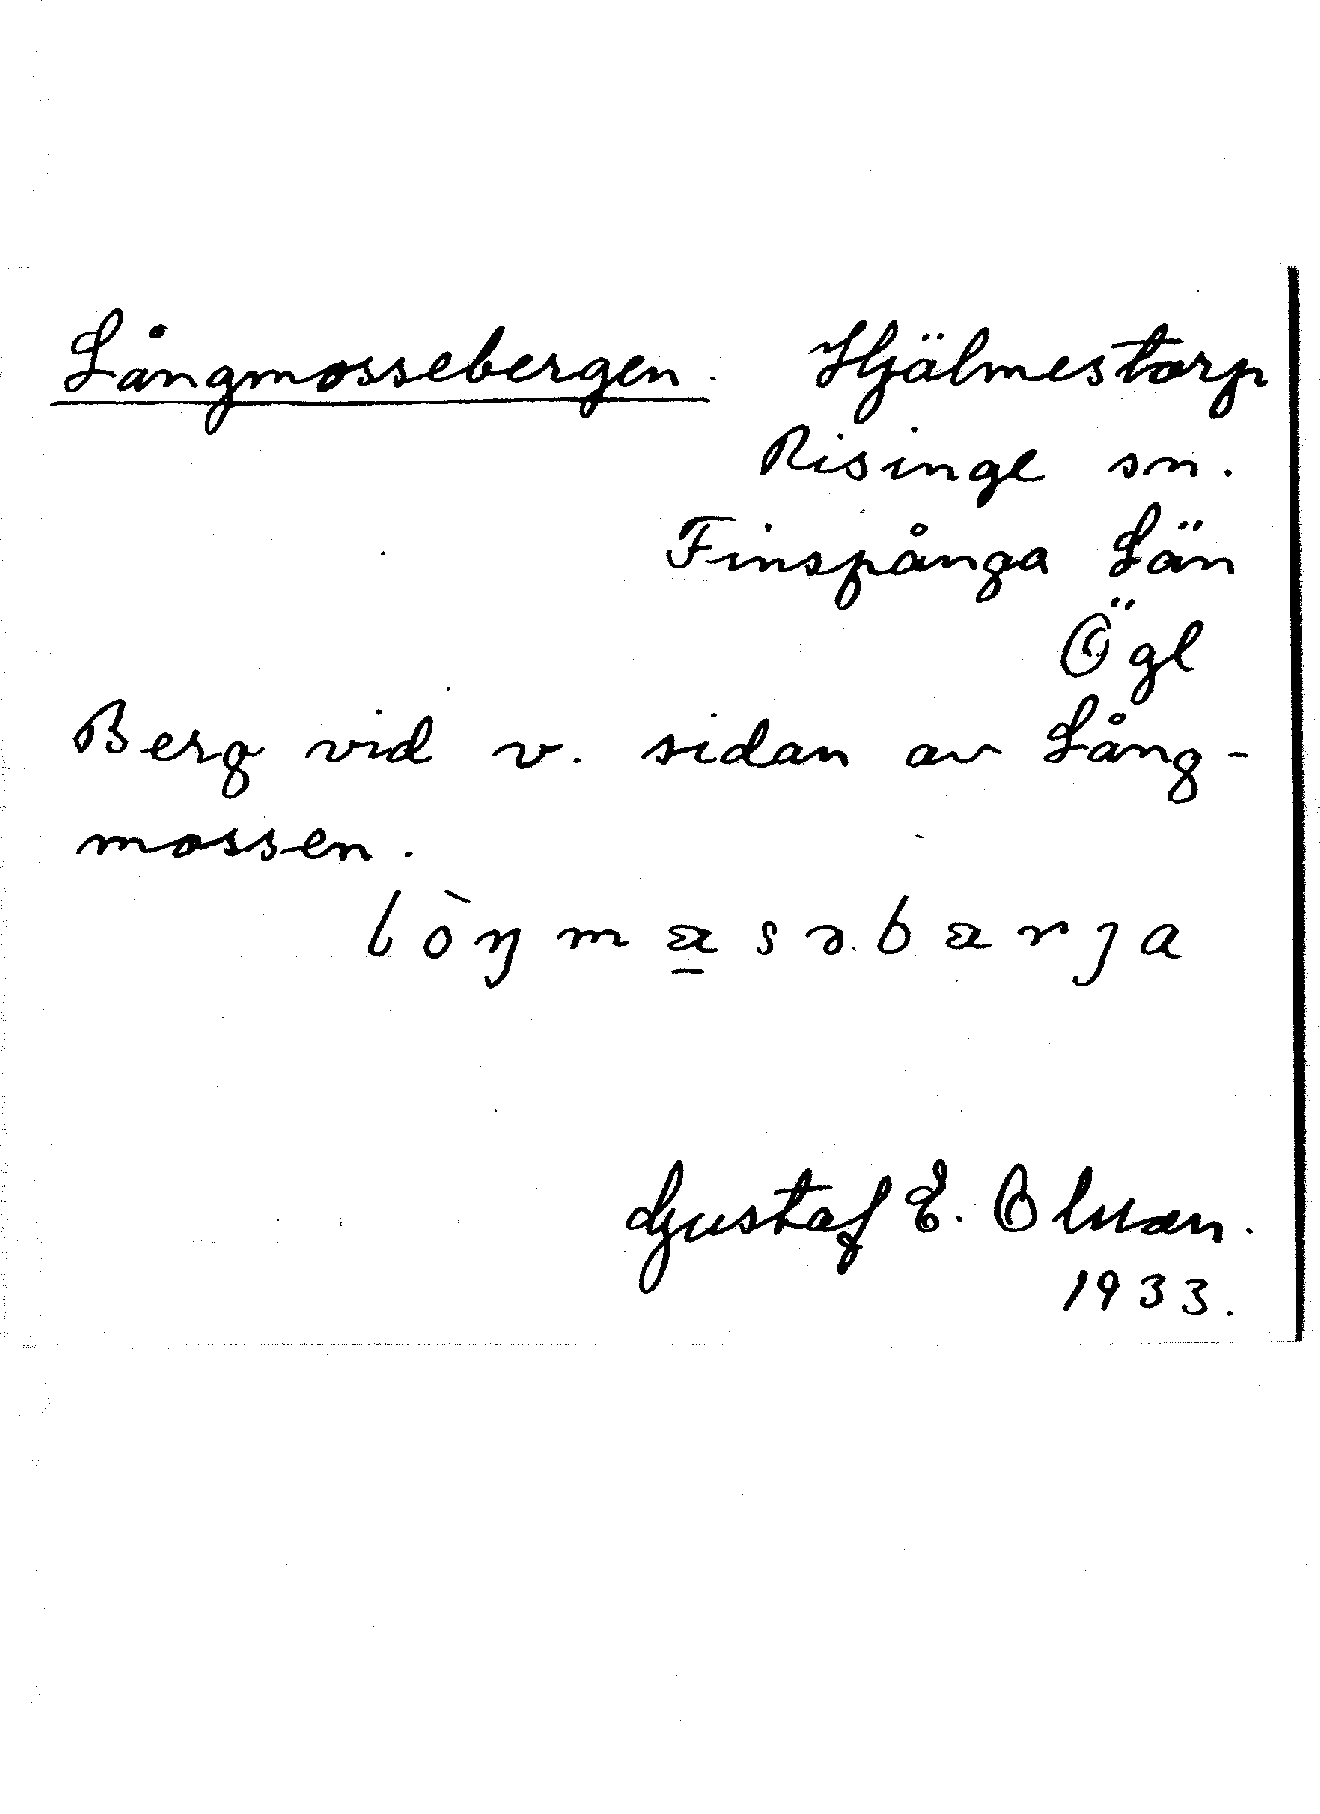 Långmossebergen. Hjälmestorp
Risinge sn.
Finspånga Län
Ögl
Berg vid v. sidan av Lång-
mossen.
lòŋma̲səbærja
Gustaf E. Olsson.
1933.